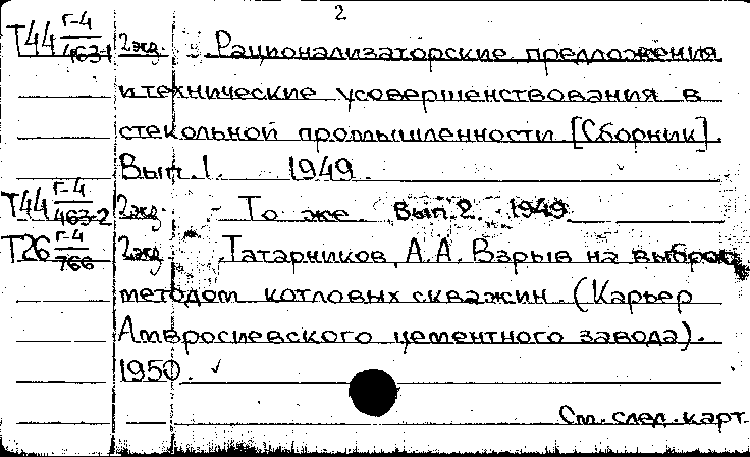 2
Т44 Г-4/463-1 2экз. Рационализаторские предложения
и технические усовершенствования в
стекольной промышленности. [Сборник].
Вып. 1. 1949.
Т44 Г-4/463-2 2экз. - То же. Вып. 2. 1949
Т26 Г-4/766 2экз. Татарников, А.А. Взрыв на выброс
методом котловых скважин. (Карьер
Амвросиевского цементного завода).
1950. ✓
См. след. карт.